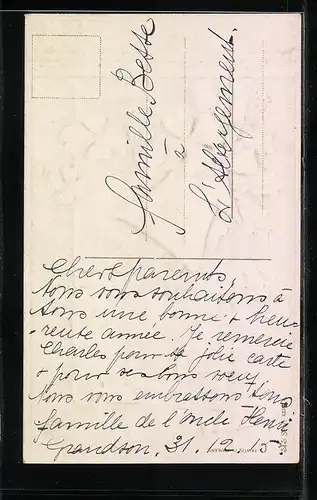 Famille Bette
à
L'Abergement.
Chers parents,
Nous vous souhaitons à
tous une bonne + heu-
reuse année. Je remercie
Charles pour sa jolie carte
+ pour ses bons voeux
Nous vous embrassons tous
famille de l'oncle Henri
Grandson, 31. 12. 15